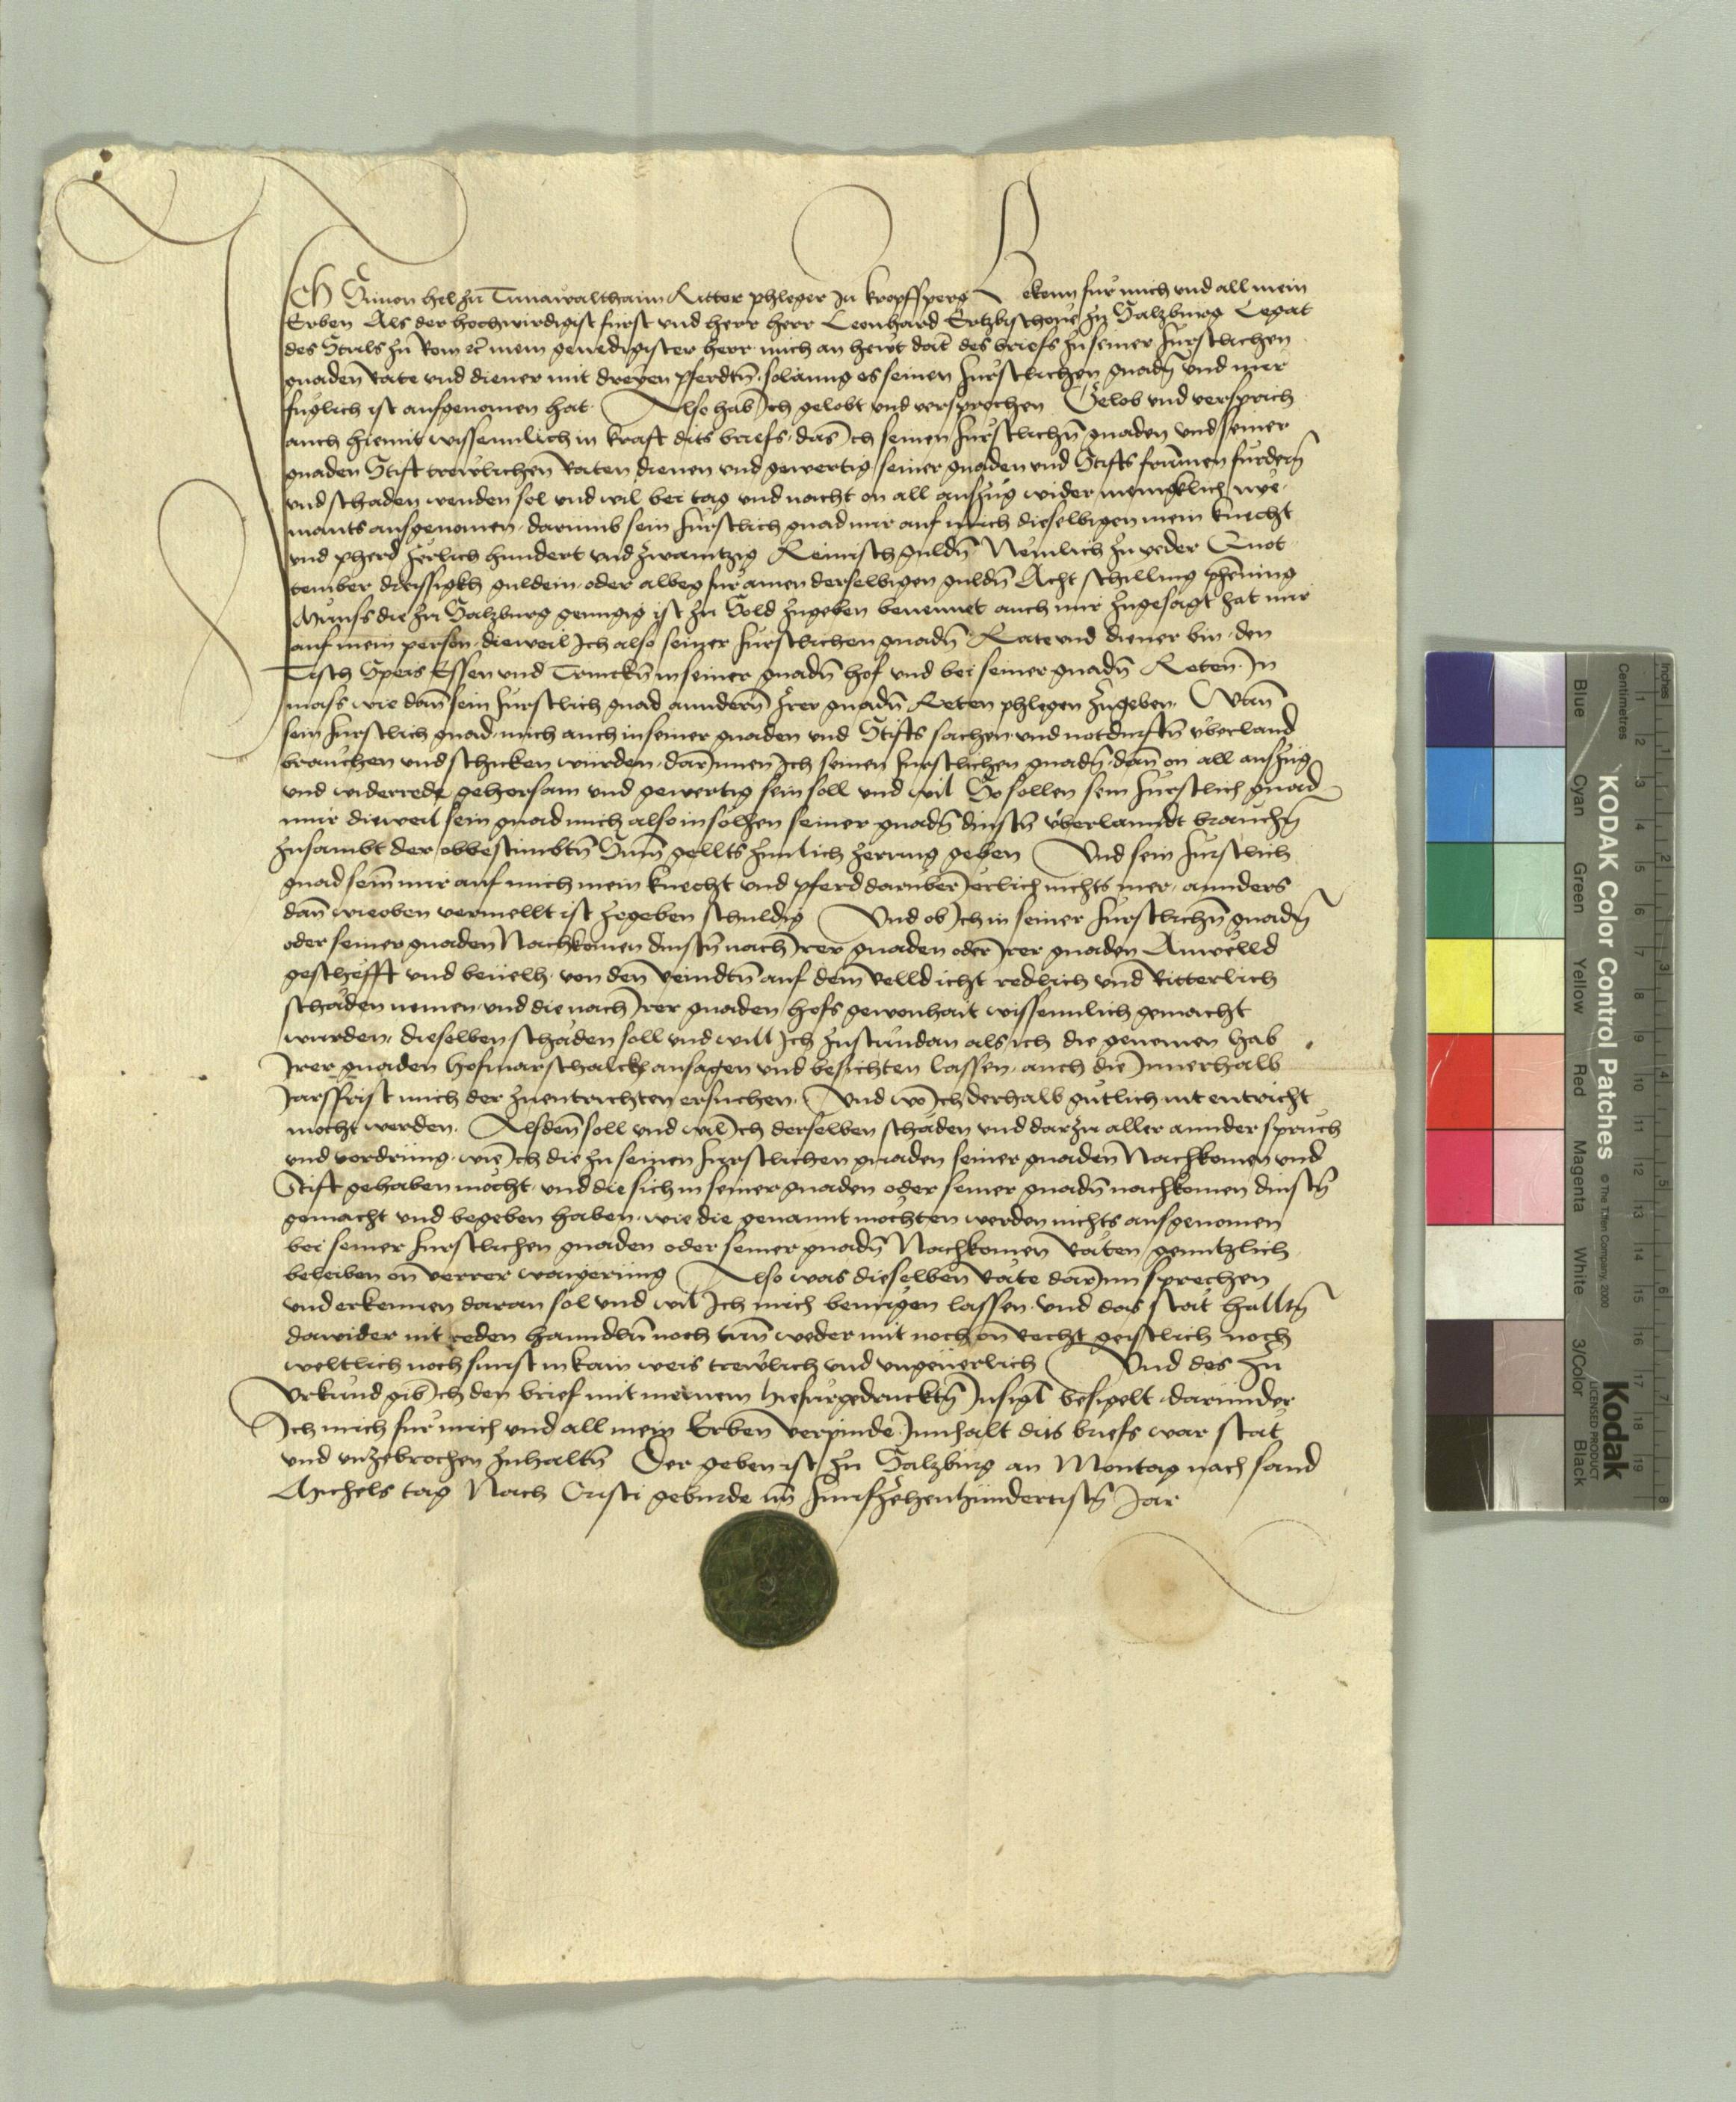 Ich Simon hel zu Tunawalthaim Ritter phleger In kropfsperg Bekenn fur mich und all mein
Erben Als der hochwirdigist furst und herr herr Leonhard Ertzbischove zu Salzburg Legat
des Stuls zu Rom etc mein genedigister herr mich an hewt dat des briefs zu seiner furstlichen
gnaden Rate und diener mit dreyen pferdtn solanng es seinen furstlichen gnadn und mir
fuglich ist aufgenomen hat Also hab Ich gelobt und versprochen Gelob und versprich
auch hiemit wissenntlich in kraft dits briefs das Ich seinen furstlichn gnaden und seiner
gnaden Stift trewlichen Raten dienen und gewertig seiner gnaden und Stifts frumen furdern
und schaden wenden sol und wil bei tag und nacht on all auszug wider menigklich nye-
mants ausgenomen darumb sein furstlich gnad mir auf mich dieselbigen mein knecht
und pherd Jerlich hundert und zwaintzig Reinisch guldn Nemlich zu yeder Quot
tember dreissigkh guldein oder albeg fur ainen derselbigen guldn Acht schilling phening
Munss die zu Salzburg genngig ist zu Sold zugeben benennet auch mir zugesagt hat mir
auf mein person dieweil Ich also seiner furstlichen gnadn Rate und diener bin den
Tisch Speis Essen und Trinckn in seiner gnadn hof und bei seiner gnadn Reten In
mass wie dann sein furstlich gnad anndern Irer gnadn Reten phlegen zugeben Wann
sein furstlich gnad mich auch in seiner gnaden und Stifts sachen und notdurftn uberland
brauchen und schicken wurden darInnen Ich seinen furstlichen gnadn dann on all auszug
und widerrede gehorsam und gewertig sein soll und wil So sollen sein furstlich gnad
mir dieweil sein gnad mich also in solhen seiner gnadn dinstn uberlanndt brauchn
zusambt der obbestimbtn Sum gellts zimlich zerung geben Und sein furstlich
gnad sein mir auf mich mein knecht und pferd daruber Jerlich nichts mer annders
dann wie oben vermellt ist zegeben schuldig Und ob Ich in seiner furstlichn gnadn
oder seiner gnaden Nachkomen dinstn nach Irer gnaden oder Irer gnaden Anwelld
geschefft und bevelh von den veindtn auf dem velld icht redlich und Ritterlich
schaden nemen und die nach Irer gnaden hofs gewonhait wissenntlich gemacht
wurden dieselben schaden soll und will Ich zustundan als ich die genomen hab
Irer gnaden hofmarschalckh ansagen und besichten lassen auch die Innerhalb
Jarsfrist mich der zuentrichten ersuchen Und wo Ich derhalb gutlich nit entricht
mocht werden Alsdenn soll und wil Ich derselben schaden und darzu aller annder spruch
und vordrung wie Ich die zu seinen furstlichen gnaden seiner gnaden Nachkomen und
Stift gehaben mocht und die sich in seiner gnaden oder seiner gnadn nachkomen dinstn
gemacht und begeben haben wie die genannt mochten werden nichts ausgenomen
bei seiner furstlichen gnaden oder seiner gnadn Nachkomen Raten genntzlich
beleiben on verrer waigerung Also was dieselben Rate darInn sprechen
und erkennen daran sol und wil Ich mich benugen lassen und das stat halltn
dawider nit reden hanndln noch tun weder mit noch on Recht geistlich noch
weltlich noch sunst in kain weis trewlich und ungeverlich Und des zu
Urkund gib Ich den brief mit meinem hiefurgedrucktn Insigl besigelt darunder
Ich mich fur mich und all mein Erben verpinde Innhalt dits briefs war stat
und unzebrochen zuhaltn Der geben ist zu Salzburg an Montag nach sand
Michels tag Nach Cristi geburde im funfzehenhundertistn Jar
Inches
Centimetres
KODAK Color Control Patches © The Tiffen Company, 2000
Kodak
LICENSED PRODUCT
Blue Cyan Green Yellow Red Magenta White 3/Color Black
1 2 3 4 5 6 7 8 9 10 11 12 13 14 15 16 17 18 19
1 2 3 4 5 6 7 8